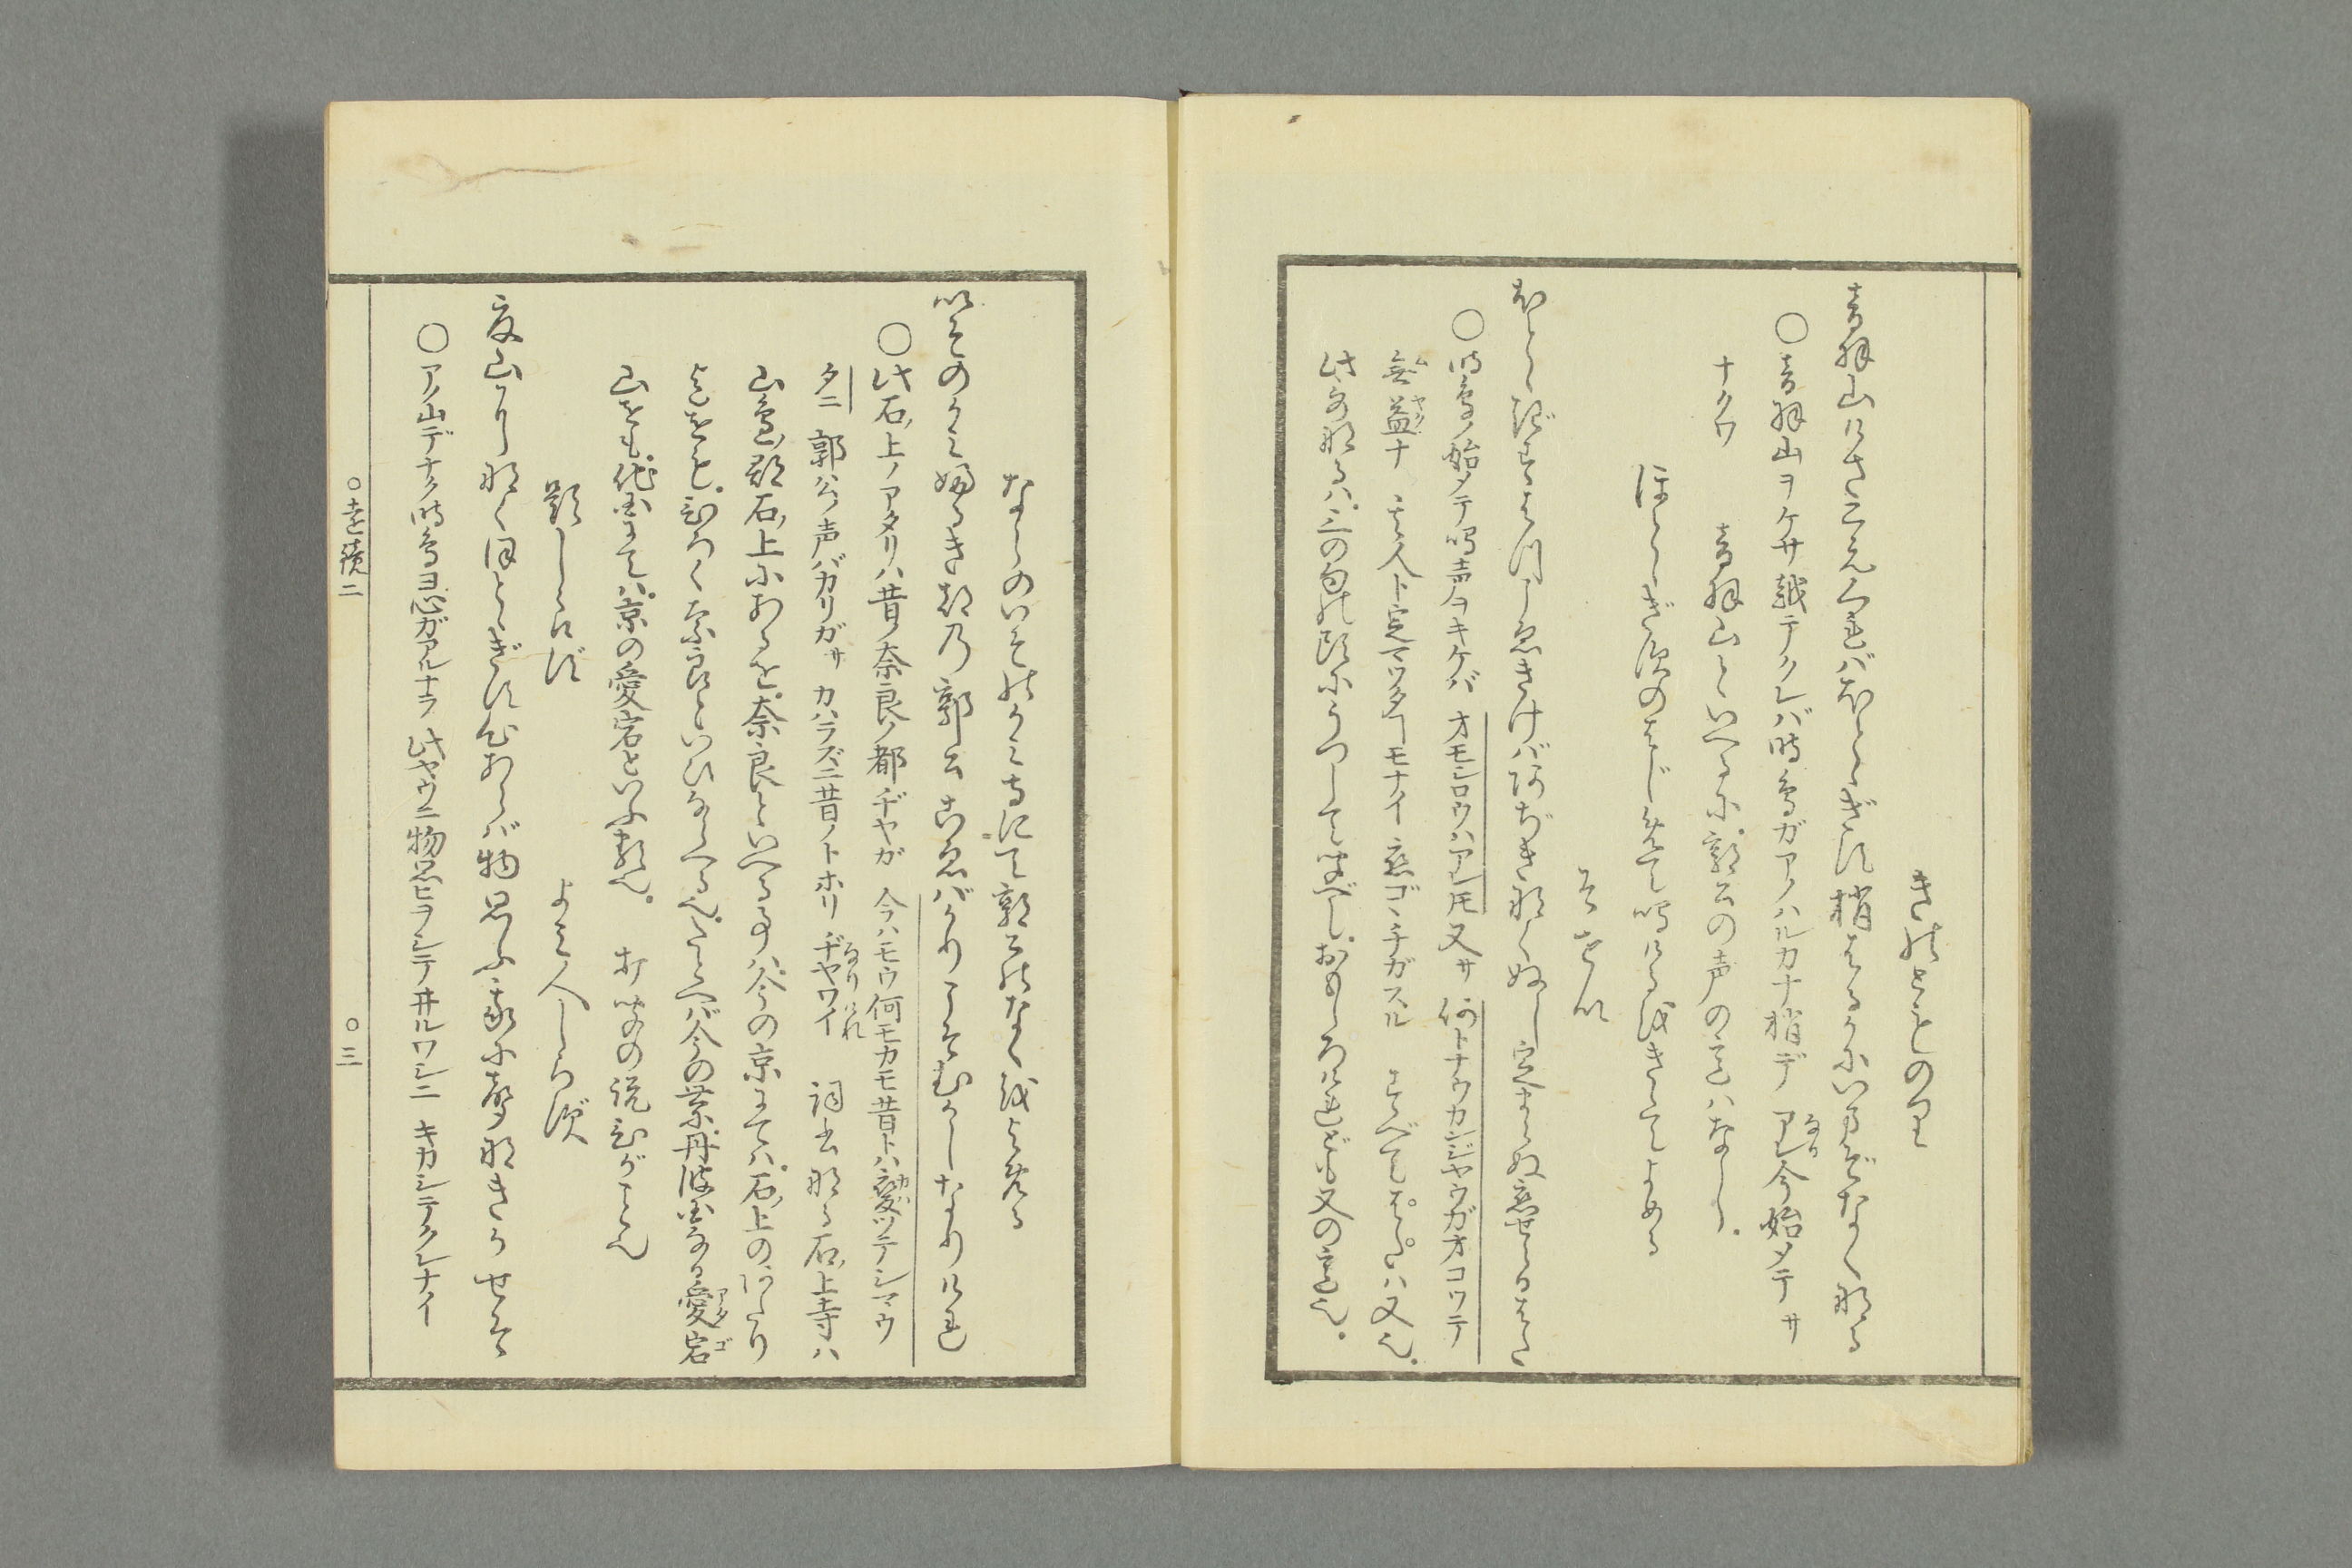 きのとものり
音羽山けさこえくればほとゝぎす梢はるかにいまぞなくなる
○音羽山ヲケサ越テクレバ時鳥ガアノハルカナ梢デ アレ今始メテサ
ナクワ
音羽山とといへるに郭公の声の意はなし。
ほとゝぎすのはじめて鳴けるをきゝてよめる
そせい
ほとゝぎすはつこゑきけばあぢきなくぬし定まらぬ恋せらるはた
○時鳥ノ始メテ鳴声ヲキケバ オモシロウハアレ𪜈 又サ 何トナウカンジヤウガオコツテ
無益ナ 其人ト定マツタヿモナイ 恋ゴヽチガスル すべてはたは又也。
此歌なるは、三の句の頭にうつして心得べし。おもしろけれども又の意也。
ならのいそのかみ寺にて郭公のなくをよめる
いそのかみふるき都の郭公こゑばかりこそむかしなりけれ
○此石ノ上ノアタリハ昔ノ奈良ノ都ヂヤガ 今ハモウ何モカモ昔トハ変ツテシマウ
タニ 郭公ノ声バカリガサ カハラズニ昔ノトホリヂヤワイ 詞書なる石上寺は
山邊ノ郡石ノ上にあるを、奈良といへる事は、今の京にては、石ノ上のあたり
までをも、ひろく奈良といひならへる也。たとへば今の世京、丹波国なる愛宕
山をも、他国にては、京の愛宕といふ類也。 打聞の説ひがこと也
題しらず よみ人しらず
夏山になくほとゝぎす心あらば物思ふ我に声なきかせそ
○アノ山デナク時鳥ヨ心ガアルナラ 此ヤウニ物思ヒヲシテ井ルワシニ キカシテクレナイ
○遠鏡二 ○三